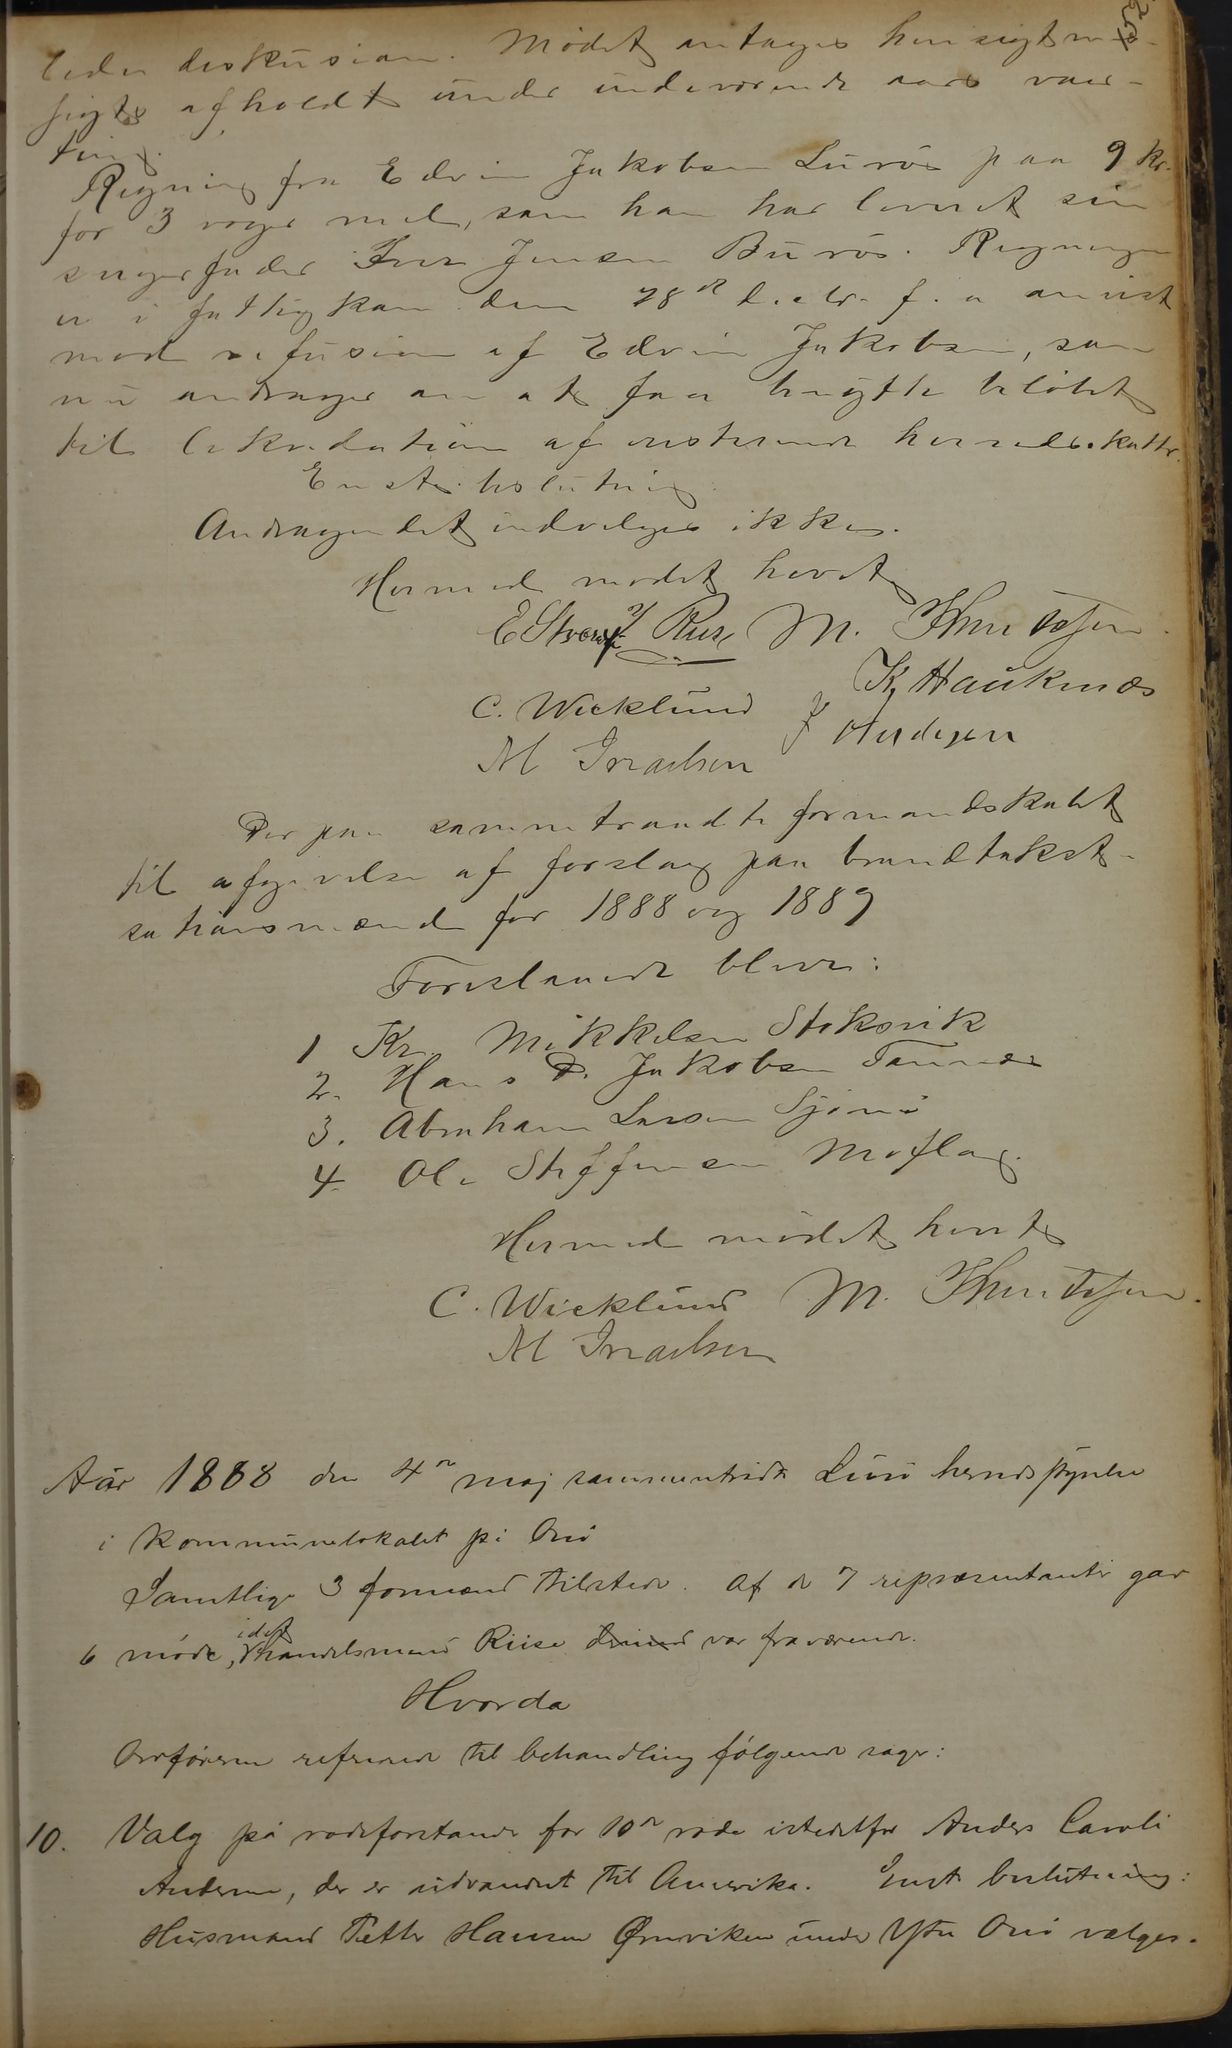 diskusion. Mødet antages hensigtmes-
sigts afholdt under indeværende aars vaar-
ting.
Regning fra Edvin Jakobsen Lurø paa 9 kr.
for 3 voger mel, som han har leveret sin
svigerfader Jensen Burøs. Regningen
er i fattigkom. den 28de f. a. anvist
mod refusion af Edvin Jakobsen, som
nu andrager om at faa benytte beløbet
til likvidation af resterende herredsskatte.
Enst. beslutning:
Andragendet indvilges ikke.
Hermed mødet hevet
Riise M.
C. Wicklund K. Haukenæs
M Israelsen
Derpaa sammentraadte formandskabet
til afgivelse af forslag paa brandtakst-
sationsmænd for 1888 og 1889
Foreslaaede blev:
1 Kr. Mikkelsen Stoksvik
2. Hans D. Jakobsen Tonnes
3. Abraham Larsen Sjonø
4. Ole Steffensen Moflag.
Hermed mødet hevet
C. Wicklund M.
M Israelsen
Aar 1888 den 4de maj sammentrådte Lurø herredsstyrelse
i kommunelokalet på Onø
Samtlige 3 formænd tilstede. Af de 7 repræsentanter gav
6 møde, idet handelsmand Riise var fraværende.
Hvorda
Ordføreren refererede til behandling følgende sager:
10. Valg på rodeforstander for 10de rode istedetfor Anders Caroli
Andersen, der er udvandret til Amerika. Enst. beslutning:
Husmand Petter Hansen Ørnviken under Ytre Onø vælges.